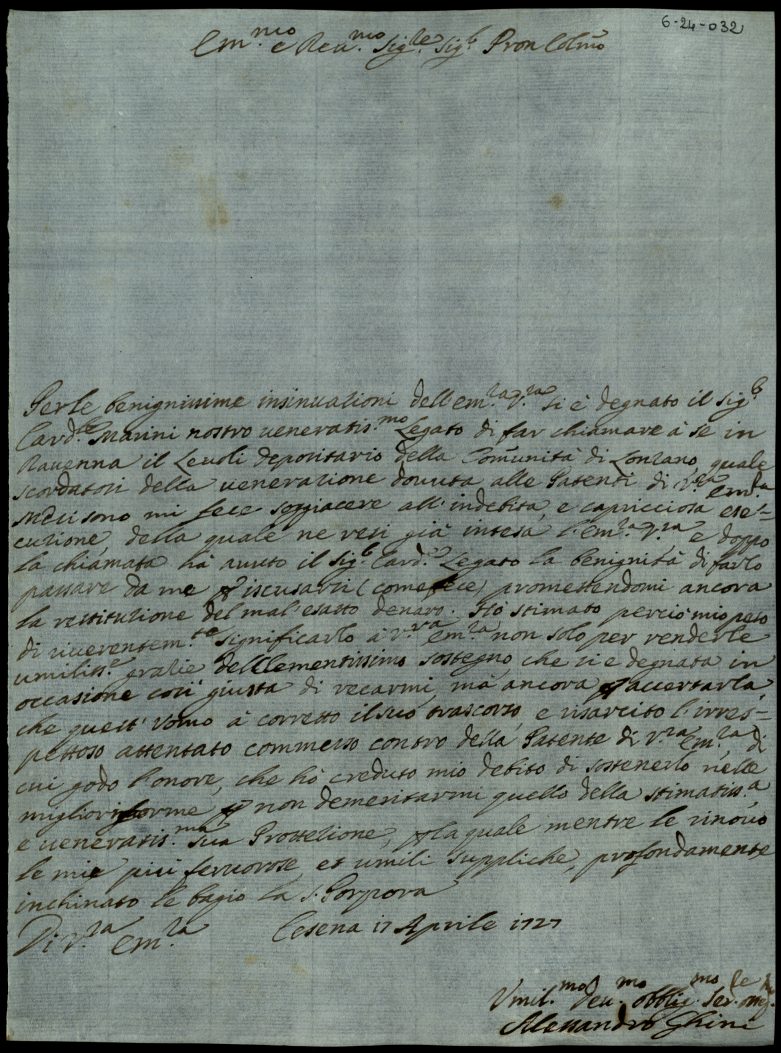 6-24-032
Em.mo e Reu.mo Sig.re Sig.r Pron Colmo
Per le benignissime insinuationi dell'em.za V.ra si è degnato il sig.r
Card.le Marini nostro veneratis.mo Legato di far chiamare à sè in
Rauenna il Leuoli depositario della Comunità di Lonzano, quale
scordatosi della veneratione douuta alle Patenti di V.ra em.za
mesi sono mi fece soggiacere all'indebita, e capricciosa ese=
cutione della quale ne resi già intesa l'em.za V.ra e doppo
la chiamata hà auuto il sig.r Card.le Legato la benignità di farlo
passare da me p iscusarsi (come fece) promettendomi ancora
la restitutione del mal'esatto denaro. Hò stimato perciò mio peso
di riuerentem.te significarlo a V.ra em.za non solo per renderle
umiliss.e gratie del Clementissimo sostegno, che si è degnata in
occasione così giusta di recarmi, mà ancora p accertarla,
che quest'Vomo à corretto il suo trascorso, e risarcito l'irres=
pettoso attentato commesso contro della Patente di V.ra Em.za, di
cui godo l'onore, che hò creduto mio debito di sostenerlo nelle
migliori forme p non demeritarmi quello della stimatiss.a
e veneratis.ma sua Prottetione, p la quale mentre le rinouo
le mie più feruorose, et umili suppliche, profondamente
inchinato le bagio la S. Porpora
Di V.ra Em.za Cesena 17 Aprile 1727
Vmil.mo deu.mo obblig.mo Ser.re
Alessandro Ghini